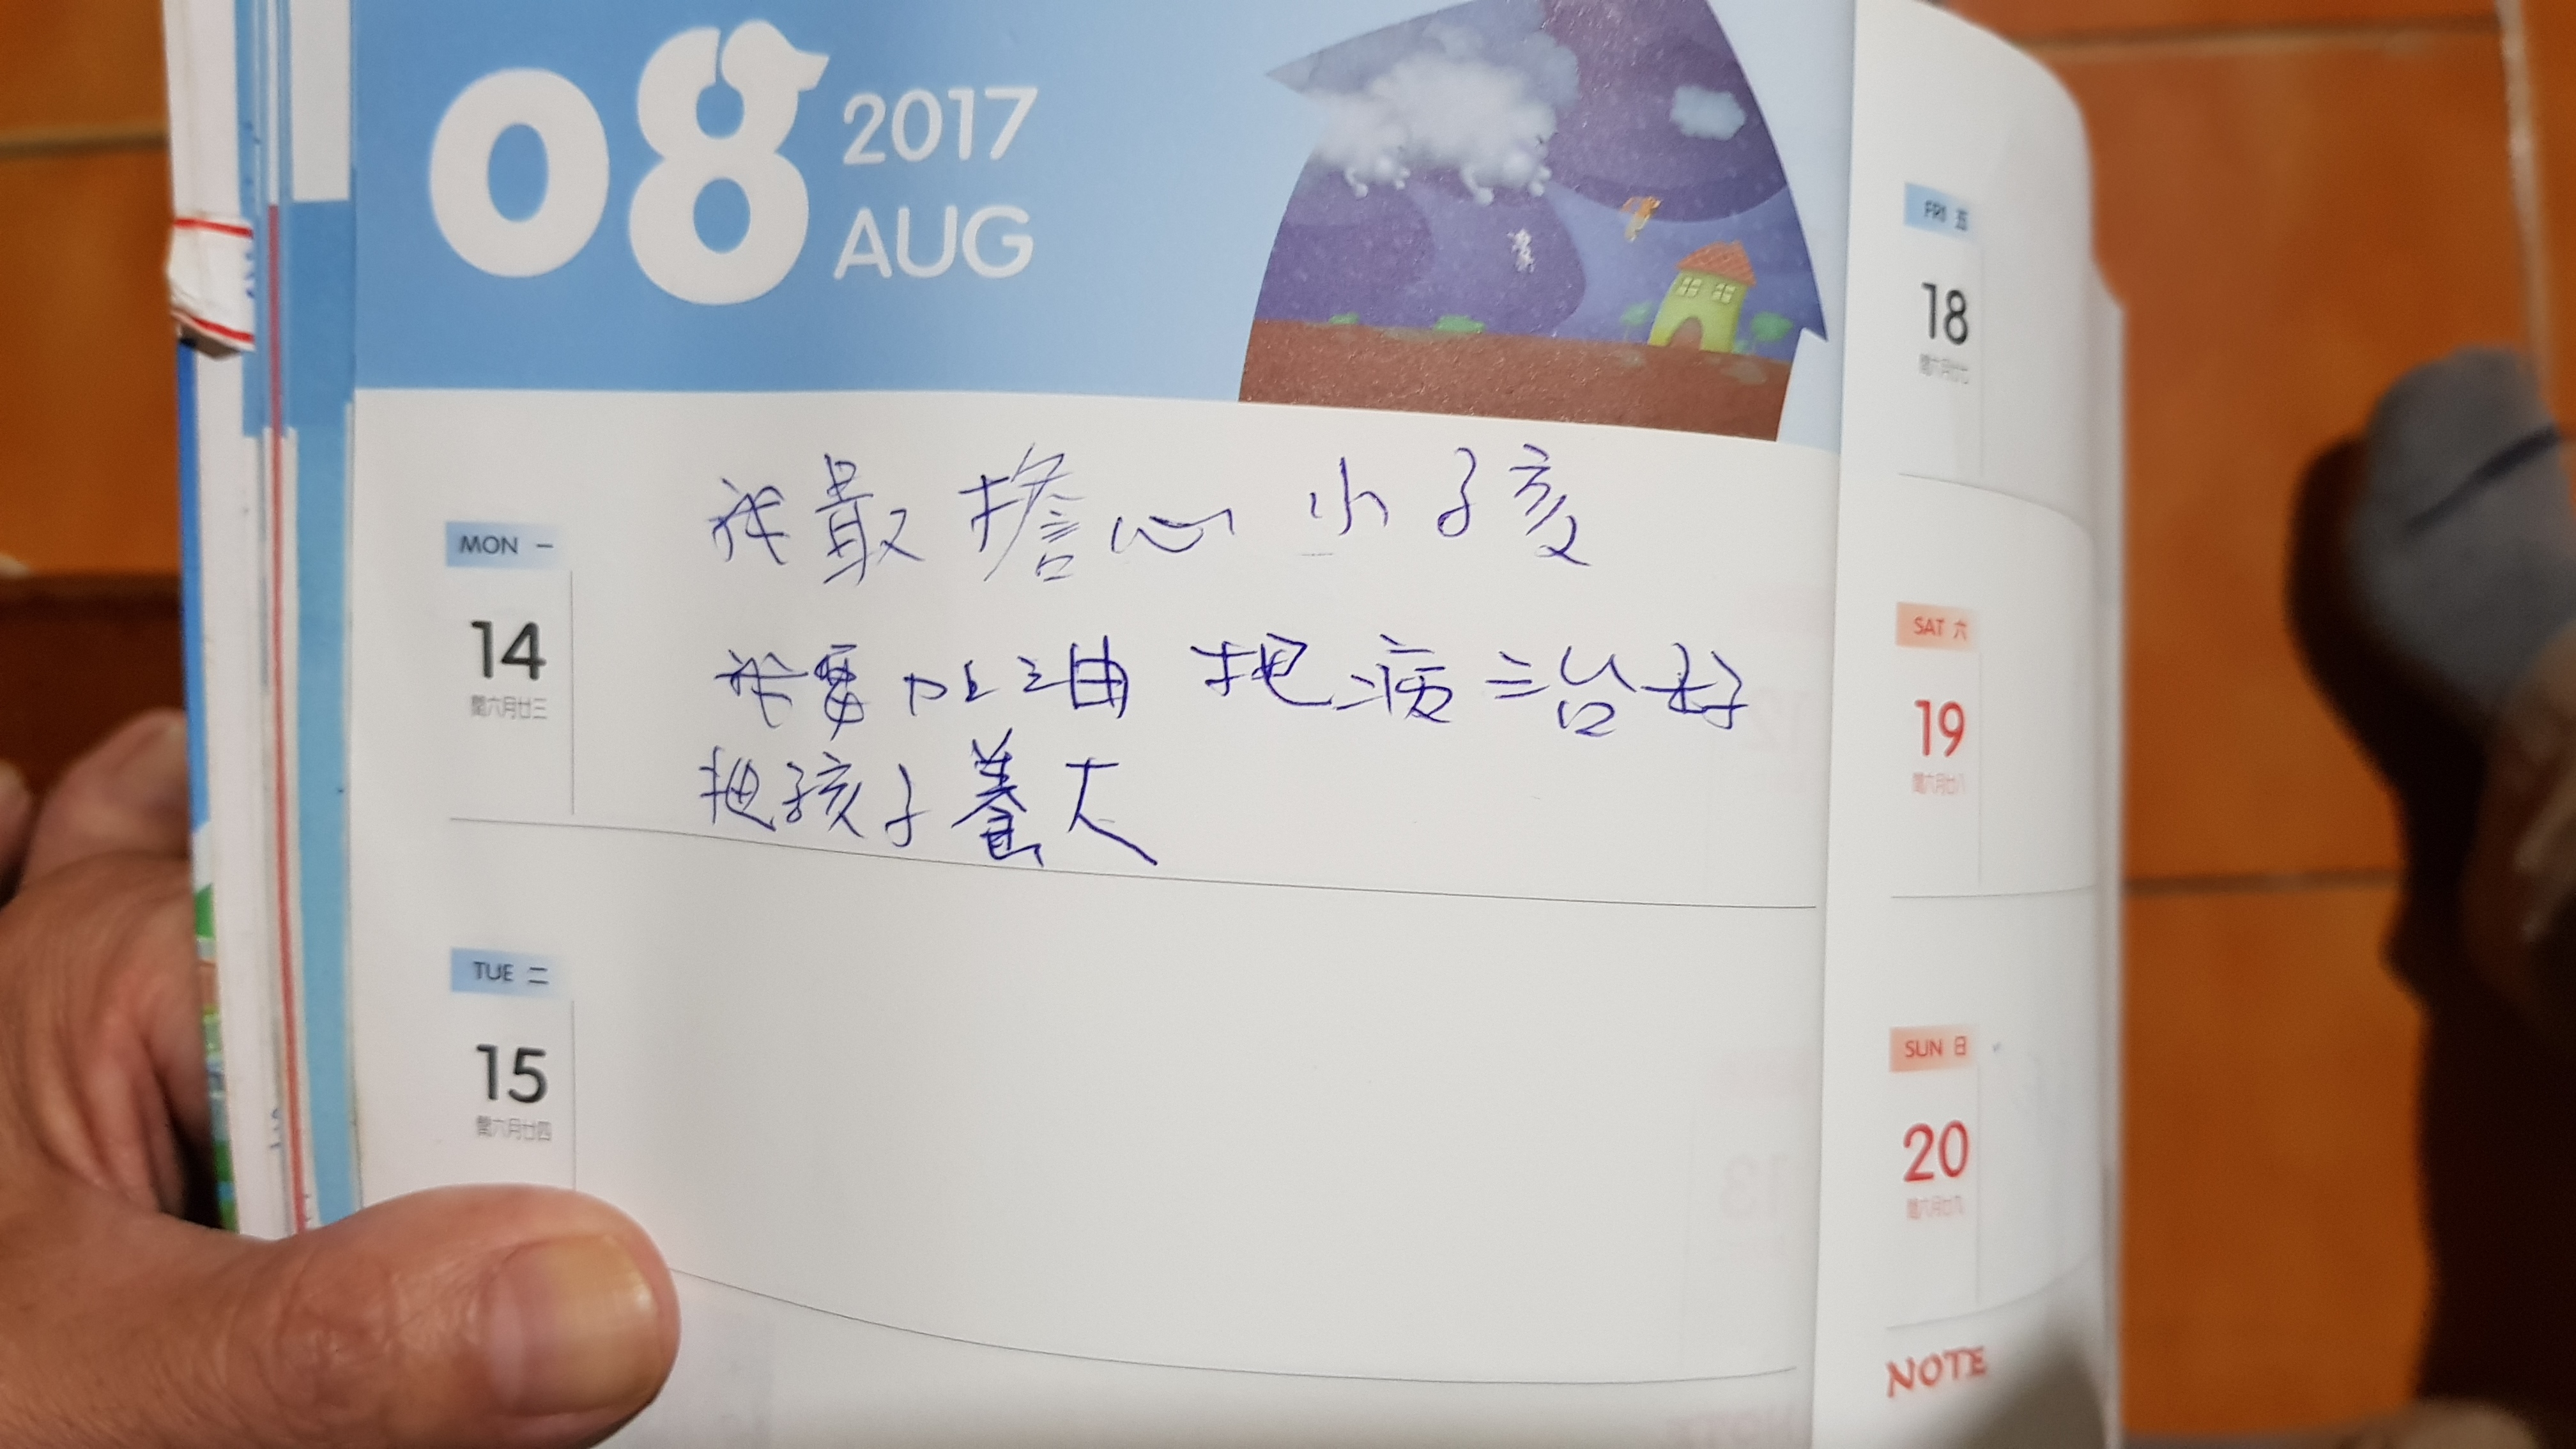 08
2017
AUG
我最擔心小孩
MON 一
14
閏六月廿三
我要加油 把病治好
把孩子養大
TUE 二
15
閏六月廿四
FRI 五
18
閏六月廿七
SAT 六
19
閏六月廿八
SUN 日
20
閏六月廿九
NOTE